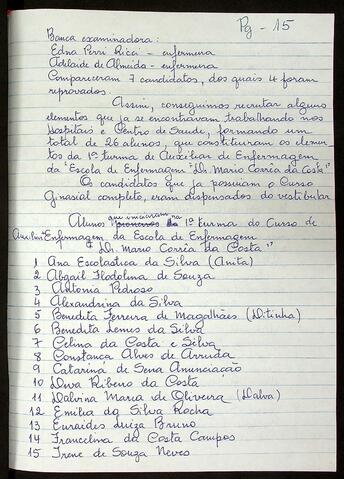 Pg - 15
Banca examinadora:
Edna Perri Ricci - enfermeira
Adelaide de Almeida - enfermeira
Compareceram 7 candidatos, dos quais 4 foram
reprovados.
Assim, conseguimos recrutar alguns
elementos que já se encontravam trabalhando nos
Hospitais e Centro de Saúde, formando um
total de 26 alunos, que constituiram os elemen-
tos da 1ª turma de Auxiliar de Enfermagem
da Escola de Enfermagem "Dr. Mario Corrêa da Costa"
Os candidatos que já possuiam o Curso
Ginasial completo, eram dispensados do vestibular
que iniciaram na
Alunos 1ª turma do Curso de
Auxiliar Enfermagem da Escola de Enfermagem
"Dr. Mario Corrêa da Costa"
1 Ana Escolastica da Silva (Anita)
2 Abgail Flodolina de Souza
3 Antonia Pedroso
4 Alexandrina da Silva
5 Benedita Ferreira de Magalhães (Ditinha)
6 Benedita Lemes da Silva
7 Celina da Costa e Silva
8 Constança Alves de Arruda
9 Catarina de Sena Anunciação
10 Dwa Ribero da Costa
11 Dalvina Maria de Oliveira (Dalva)
12 Emilia da Silva Rocha
13 Euraides Luiza Bruno
14 Francelina da Costa Campos
15 Irene de Souza Neves